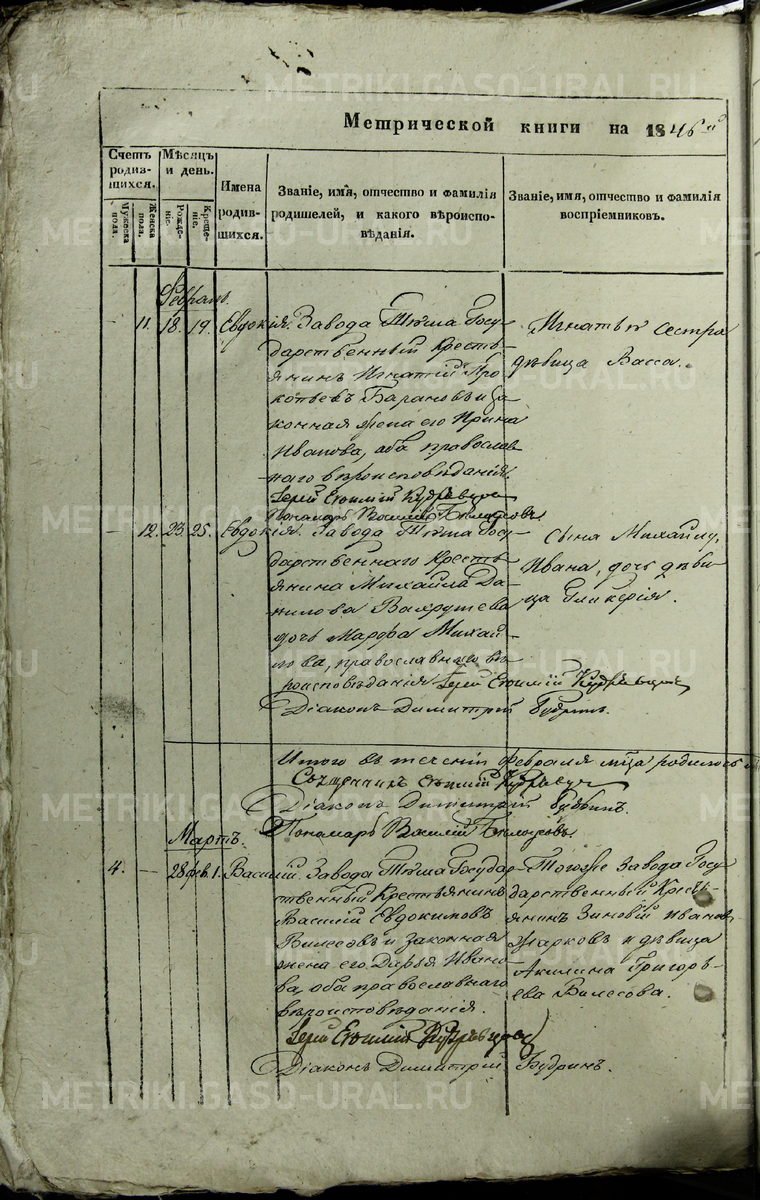 METRIKI.GASO-URAL.RU
Метрической книги на 1846й
Счетъ родившихся.
Мужеска пола.
Женска пола.
Мѣсяцъ и день.
Рожденіе.
Крещеніе.
Имена родившихся.
Званіе, имя, отчество и фамилія
родителей, и какого вѣроиспо-
вѣданія.
Званіе, имя, отчество и фамилія
воспріемниковъ.
Февраль.
– 11. 18. 19. Евдокія. Завода Тиса Госу-
дарственный Кресть-
янинъ Игнатій Про
копьевъ Барановъ и за
конная жена его Ирина
Иванова, оба православ
наго вѣроисповѣданія.
Іерей Евѳимій Кудрявцовъ
Пономарь Василій
Игнатья сестра
дѣвица Васса.
– 12. 23. 25. Евдокія. Завода Тиса Госу-
дарственнаго Кресть-
янина Михайла Да-
нилова Вахрушева
дочь Марѳа Михай-
лова, православнаго вѣ-
роисповѣданія Іерей Евѳимій Кудрявцовъ
Діаконъ Димитрій Будринъ.
Сына Михайлу,
Ивана, дочь дѣви
ца Гликерія.
Итого въ теченіи февраля мѣца родилось
Священникъ Евѳимій Кудрявцовъ
Діаконъ Димитрій Будринъ.
Пономарь Василій
Мартъ.
4. – 28 фев. 1. Василій. Завода Тиса Государ-
ственный Крестьянинъ
Василій Евдокимовъ
Вилесовъ и законная
жена его Дарья Ивано-
ва, оба православнаго
вѣроисповѣданія.
Іерей Евѳимій Кудрявцовъ
Діаконъ Димитрій Будринъ.
Тогоже завода Госу-
дарственный Кресть-
янинъ Зиновій Ивановъ
Жарковъ и дѣвица
Акилина Григорь-
ева Вилесова.